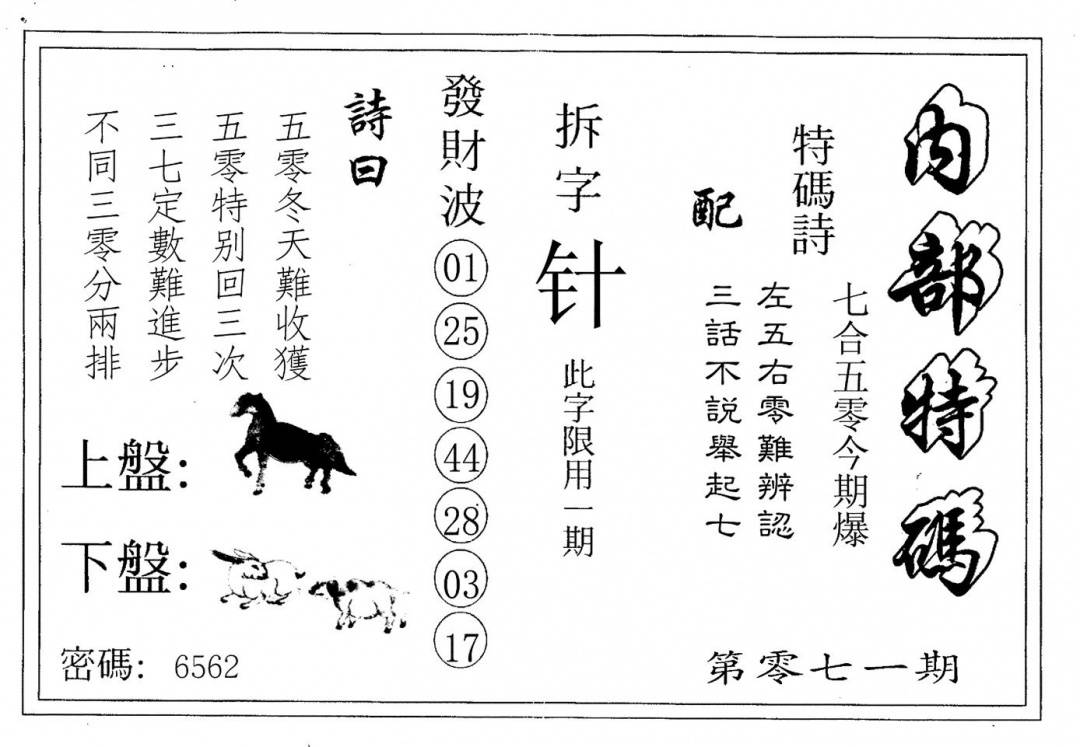 内部特碼
第零七一期
特碼詩
七合五零今期爆
左五右零難辨認
三話不説舉起七
配
拆字
针
此字限用一期
發財波
01
25
19
44
28
03
17
詩曰
五零冬天難收獲
五零特别回三次
三七定數難進步
不同三零分兩排
上盤：
下盤：
密碼： 6562